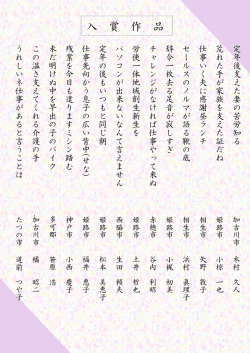 入賞作品
定年後支えた妻の苦労知る　加古川市　木村　久人
荒れた手が家族を支えた証だね　姫路市　小椋　一也
仕事いく夫に感謝昼ランチ　相生市　矢野　敦子
セールスのノルマが語る靴の底　相生市　浜村　眞理子
辞令一枚去る足音が寂しすぎ　姫路市　小梶　初美
チャレンジがなければ仕事やって来ぬ　赤穂市　谷内　利昭
労使一体地域創生新生を　姫路市　土井　哲也
パソコンが出来ないなんて言えません　西脇市　生田　頼夫
定年の後もいつもと同じ朝　姫路市　松本　美恵子
仕事先向かう息子の広い背中(せな)　姫路市　福井　恵子
残業を今日も遣りますミシン踏む　神戸市　小西　慶子
未だ明けぬ中を早出の子のバイク　多可郡　笹原　浩
この温さ支えてくれる介護の手　加古川市　橘　昭二
うれしいネ仕事があると言うことは　たつの市　道前　つや子